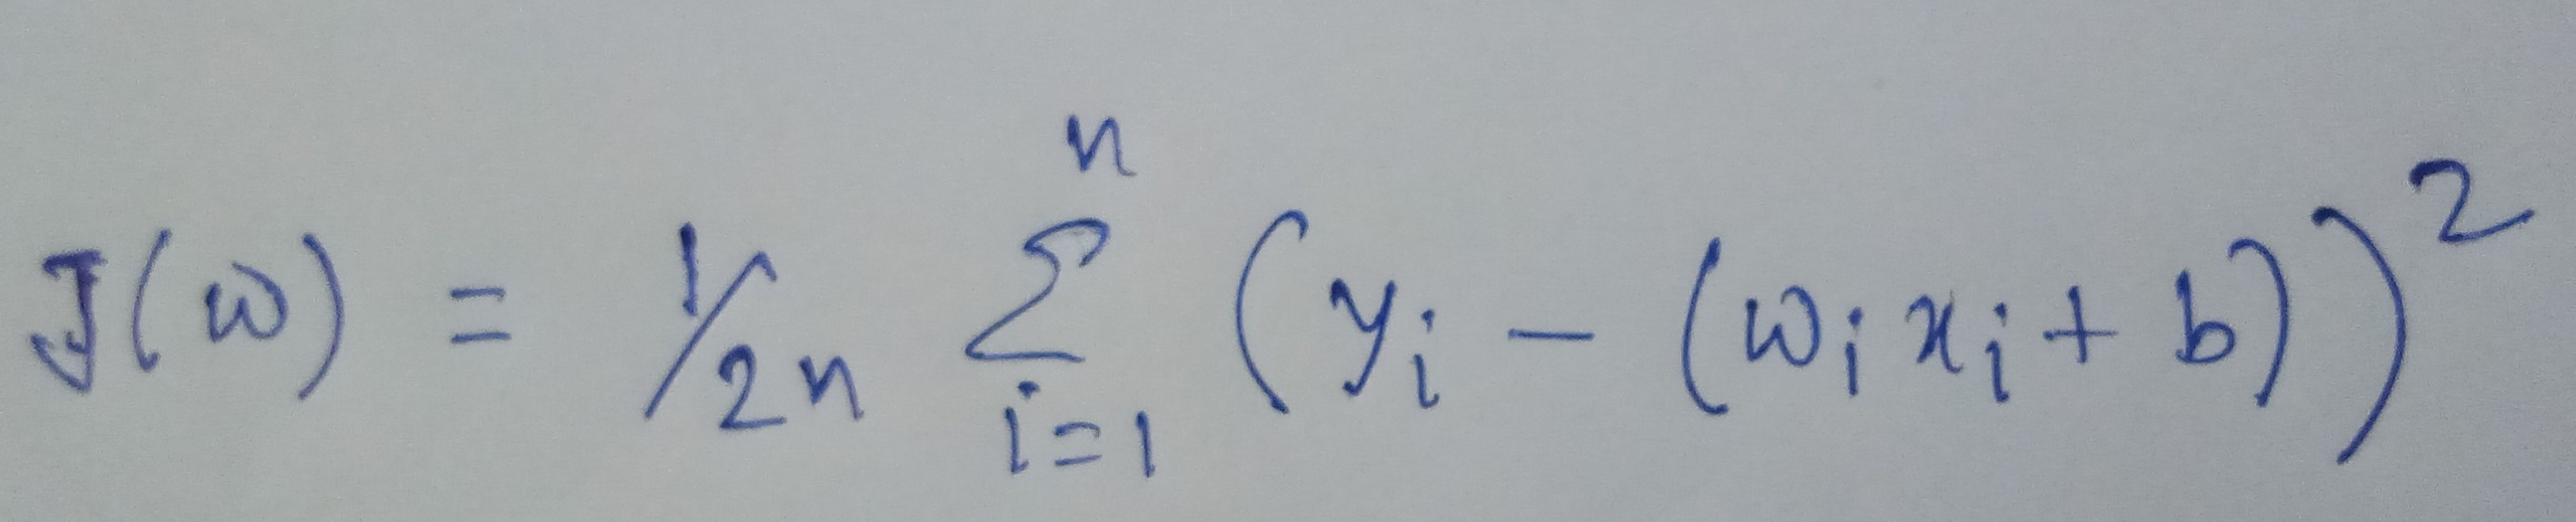 J(ω) = 1/2n Σ_{i=1}^{n} (y_i - (ω_i x_i + b))^2